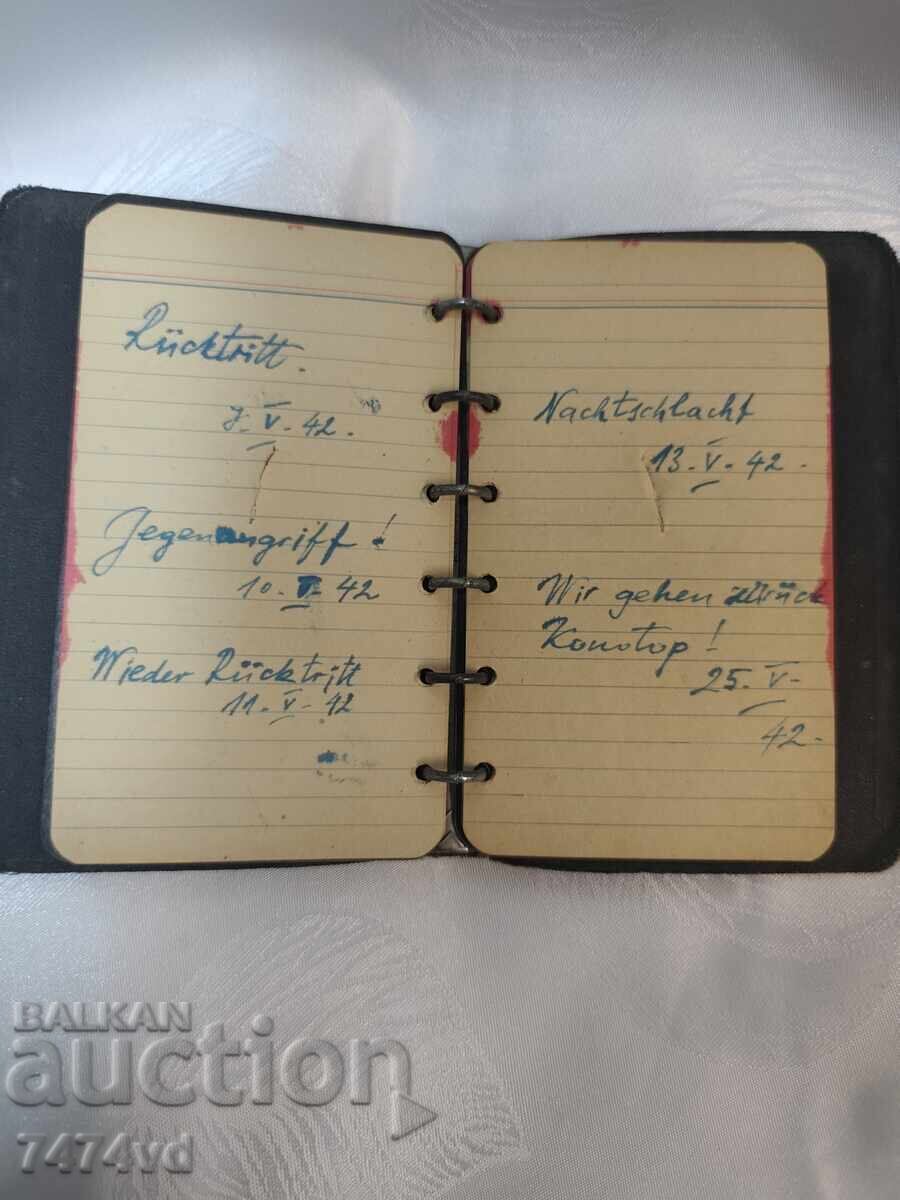 Rücktritt.
7. V. 42.
Gegenangriff!
10. V. 42
Wieder Rücktritt
11. V. 42
Nachtschlacht
13. V. 42.
Wir gehen zurück
Konotop!
25. V.
42.
BALKAN
auction
7474vd